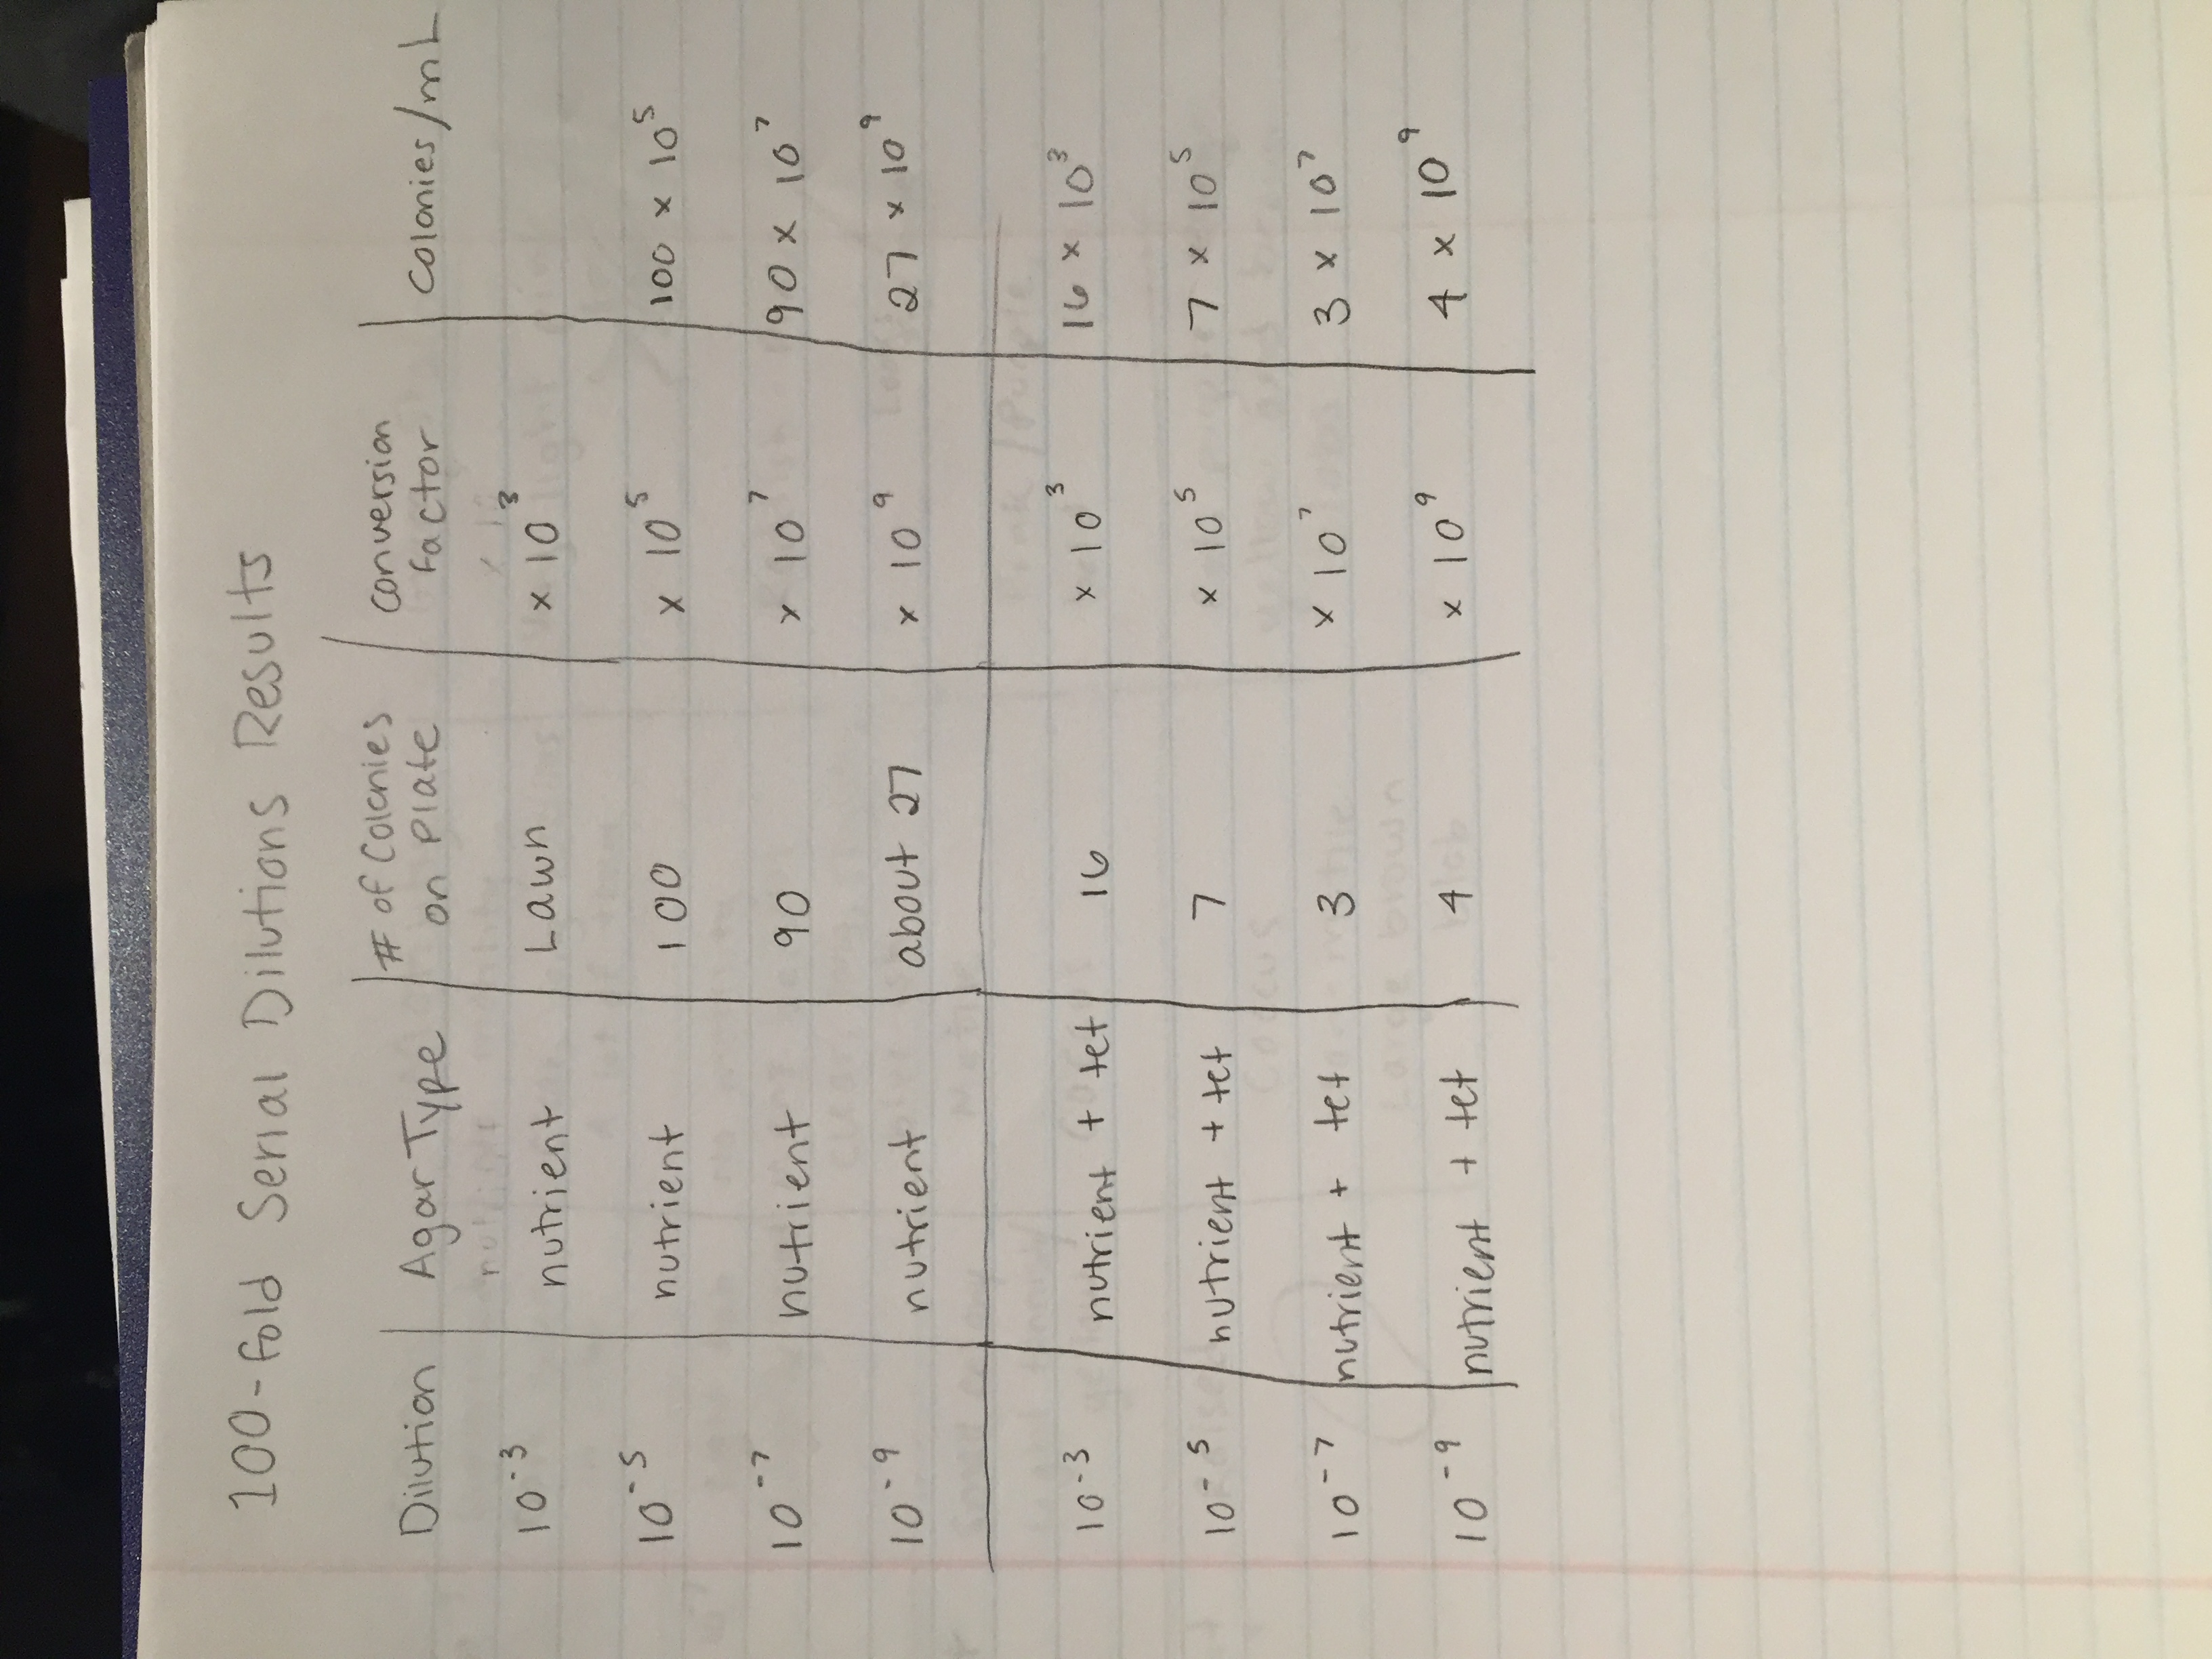 100-fold Serial Dilutions Results
Dilution | Agar Type | # of Colonies on Plate | Conversion Factor | Colonies/mL
10⁻³ | nutrient | Lawn | x 10³ |
10⁻⁵ | nutrient | 100 | x 10⁵ | 100 x 10⁵
10⁻⁷ | nutrient | 90 | x 10⁷ | 90 x 10⁷
10⁻⁹ | nutrient | about 27 | x 10⁹ | 27 x 10⁹
10⁻³ | nutrient + tet | 16 | x 10³ | 16 x 10³
10⁻⁵ | nutrient + tet | 7 | x 10⁵ | 7 x 10⁵
10⁻⁷ | nutrient + tet | 3 | x 10⁷ | 3 x 10⁷
10⁻⁹ | nutrient + tet | 4 | x 10⁹ | 4 x 10⁹